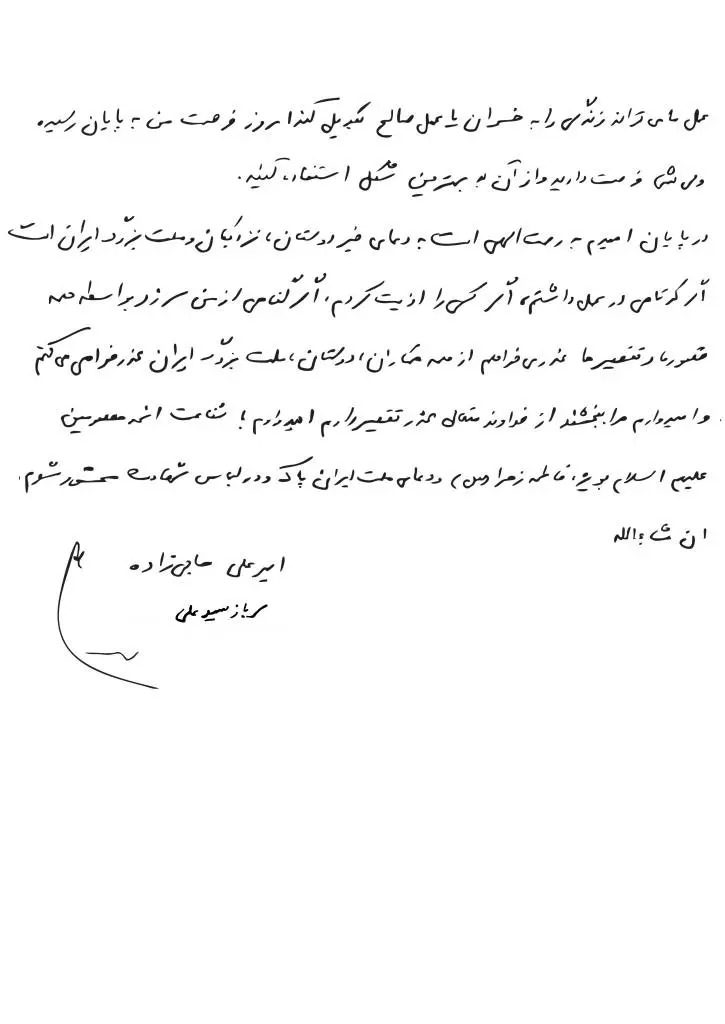 عمل ما می تواند زندگی را به خسران یا عمل صالح تبدیل کند امروز فرصت من به پایان رسیده
ولی شما فرصت دارید و از آن به بهترین شکل استفاده کنید.
در پایان امیدم به رحمت الهی است به دعای خیر دوستان، نزدیکان و ملت بزرگ ایران است
اگر کوتاهی در عمل داشتم، اگر کسی را اذیت کردم، اگر گناهی از من سر زد بواسطه همه
قصورها و تقصیرها عذر می‌خواهم از همه همکاران، دوستان، ملت بزرگ ایران عذرخواهی می‌کنم
و امیدوارم مرا ببخشند از خداوند متعال عذر تقصیر دارم امیدوارم با شفاعت ائمه معصومین
علیهم السلام بویژه فاطمه زهرا (س) و دعای ملت ایران پاک و در لباس شهادت محشور شوم.
ان شاءالله
امیرعلی حاجی زاده
سرباز سید علی